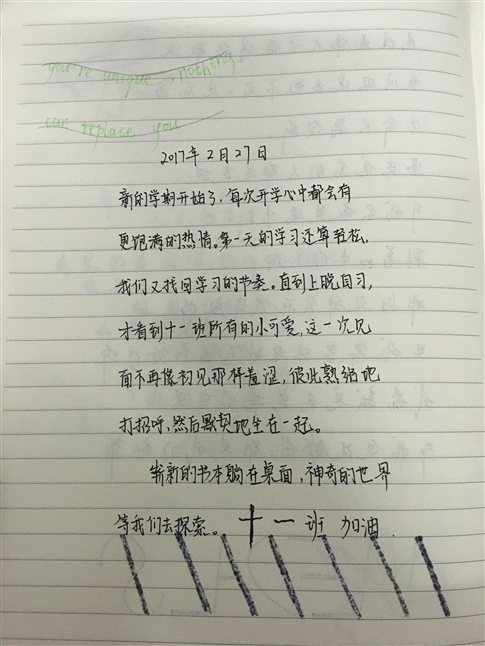 you're unique, nothing
can replace you
2017年2月27日
新的学期开始了,每次开学心中都会有
更饱满的热情。第一天的学习还算轻松,
我们又找回学习的节奏。直到上晚自习,
才看到十一班所有的小可爱,这一次见
面不再像初见那样羞涩,彼此熟络地
打招呼,然后默契地坐在一起。
崭新的书本躺在桌面,神奇的世界
等我们去探索。十一班 加油.